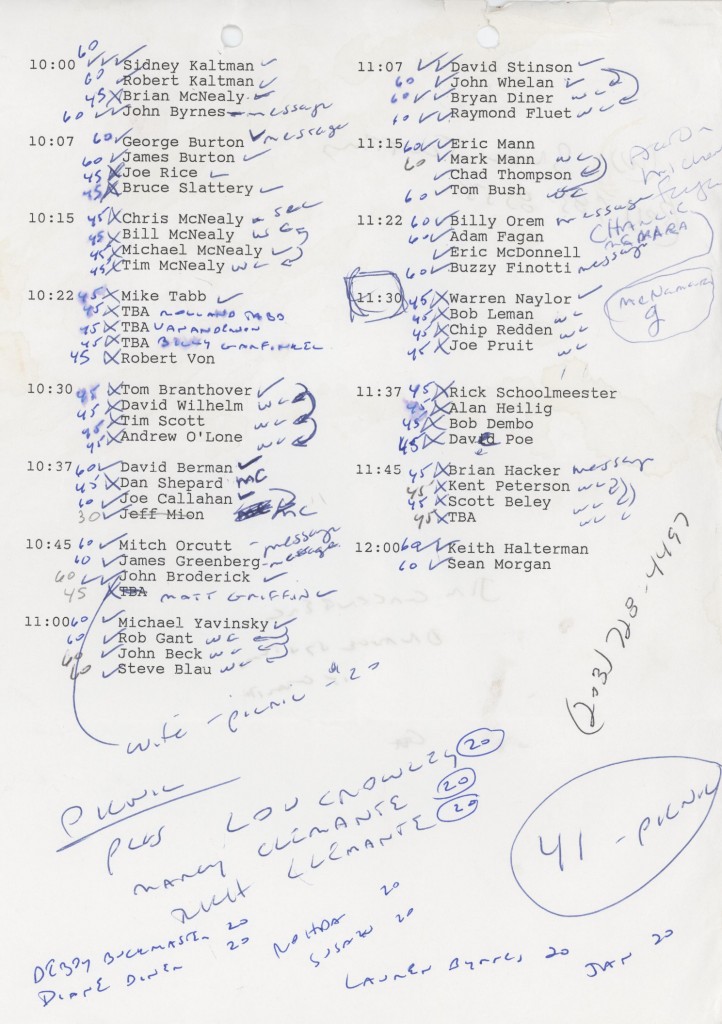 60
10:00 ✓✓✓ Sidney Kaltman ✓
60 ✓ Robert Kaltman ✓
45 X Brian McNealy ✓
60 ✓✓ John Byrnes - message
10:07 60 ✓ George Burton ✓ message
60 ✓ James Burton ✓
45 X Joe Rice ✓
45 X Bruce Slattery ✓
10:15 45 X Chris McNealy
45 X Bill McNealy
45 X Michael McNealy ✓
45 X Tim McNealy
10:22 45 X Mike Tabb ✓
45 X TBA ROLLAND TABB
45 X TBA
45 X TBA
45 X Robert Von
10:30 45 X Tom Branthover ✓
45 X David Wilhelm
45 X Tim Scott
45 X Andrew O'Lone
10:37 60 ✓ David Berman ✓
45 X Dan Shepard MC
60 ✓ Joe Callahan ✓
30 ✓ Jeff Mion MC
10:45 60 ✓ Mitch Orcutt - message
60 ✓ James Greenberg - message
60 ✓✓ John Broderick ✓
45 X TBA MATT GRIFFIN ✓
11:00 60 ✓ Michael Yavinsky ✓
60 ✓ Rob Gant
60 ✓ John Beck
60 ✓ Steve Blau
wife - picnic - 20
11:07 ✓✓ David Stinson ✓
60 ✓ John Whelan ✓
60 ✓✓ Bryan Diner
60 ✓✓ Raymond Fluet
11:15 60 ✓✓ Eric Mann
60 ✓ Mark Mann
✓ Chad Thompson
60 ✓ Tom Bush
11:22 60 ✓ Billy Orem message
60 ✓ Adam Fagan
✓ Eric McDonnell
60 ✓ Buzzy Finotti message
CHARLIE
McNAMARA
McNamara
11:30 45 X Warren Naylor ✓
45 X Bob Leman
45 X Chip Redden
45 X Joe Pruit
11:37 45 X Rick Schoolmeester
45 X Alan Heilig
45 X Bob Dembo
45 X David Poe
11:45 45 X Brian Hacker message
45 X Kent Peterson
45 X Scott Beley
45 X TBA
12:00 60 ✓ Keith Halterman
60 ✓ Sean Morgan
(203) 728-4497
PICNIC
PLUS LOU CROWLEY 20
NANCY CLEMANTE 20
RICH CLEMANTE 20
41 - PICNIC
DEBBY BUCKMASTER 20
DIANE DINER 20
20
SUSAN 20
LAUREN BYRNES 20
JAN 20